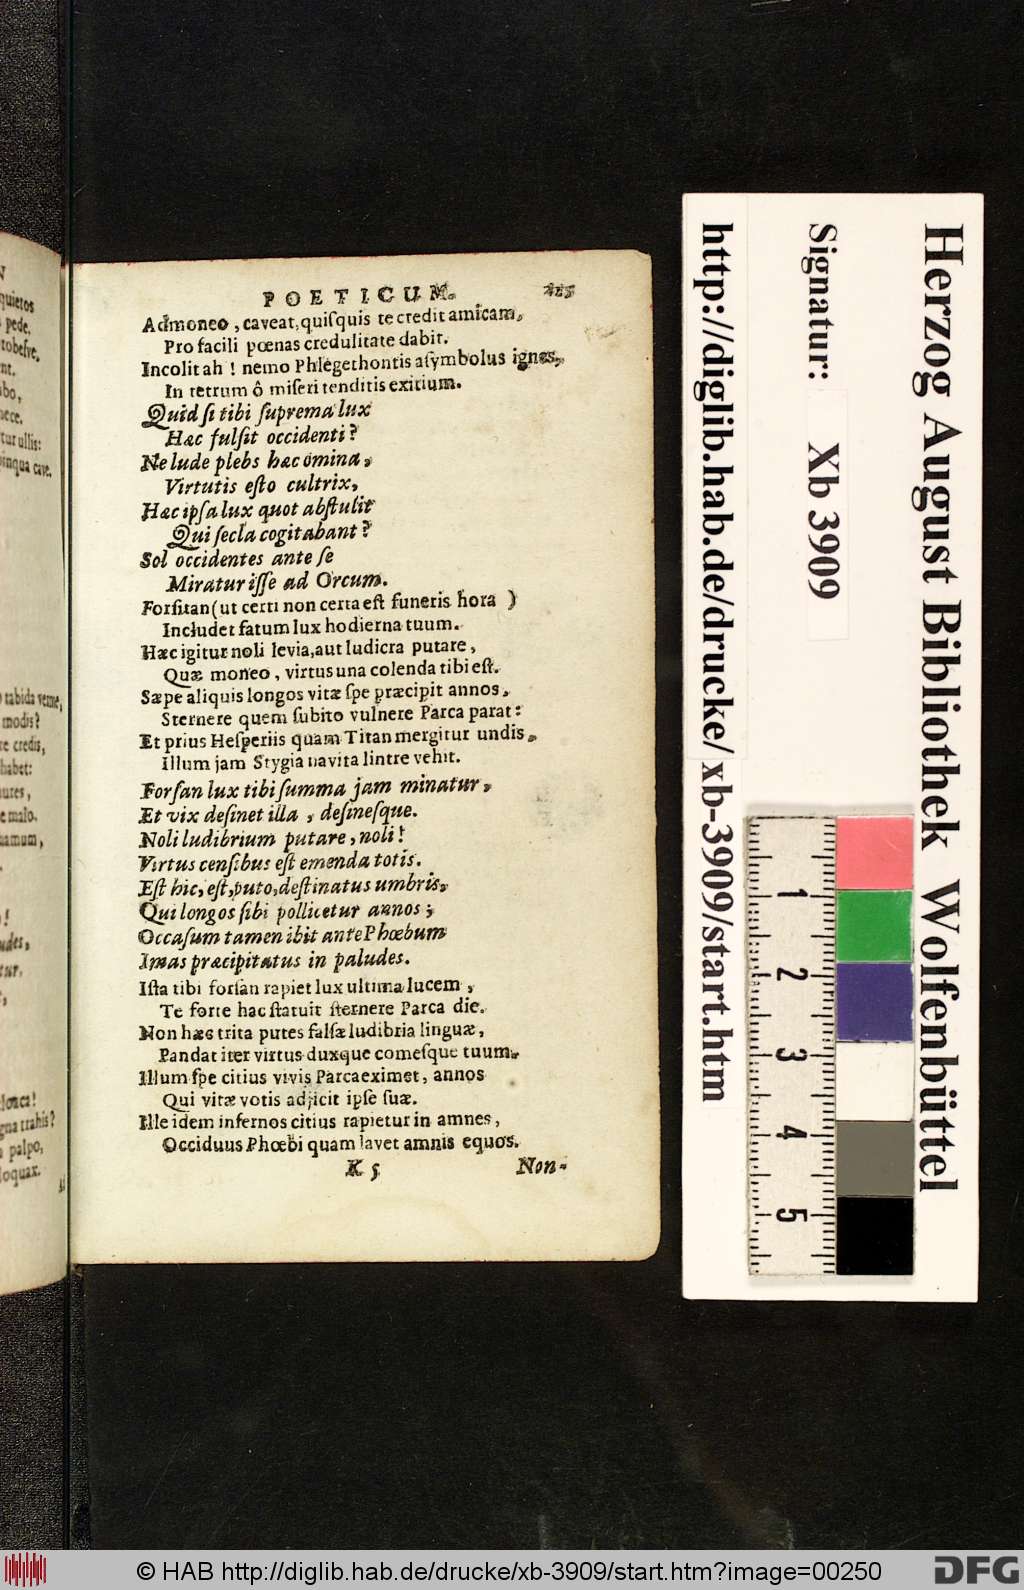 N
quietos
pede.
nt.
tur ullis:
inqua cave.
tabida verne,
modis?
re credis,
habet:
e malo.
!
udes,
gna trahis?
palpo,
loquax.
POETICUM.
Admoneo, caveat, quiſquis te credit amicam,
Pro facili pœnas credulitate dabit.
Incolit ah! nemo Phlegethontis aſymbolus ignes,
In tetrum ô miſeri tenditis exitium.
Quid ſi tibi ſuprema lux
Hæc fulſit occidenti?
Ne lude plebs hæc omina,
Virtutis eſto cultrix,
Hæc ipſa lux quot abſtulit
Qui ſecla cogitabant?
Sol occidentes ante ſe
Miratur iſſe ad Orcum.
Forſitan (ut certi non certa eſt funeris hora)
Includet fatum lux hodierna tuum.
Hæc igitur noli levia, aut ludicra putare,
Quæ moneo, virtus una colenda tibi eſt.
Sæpe aliquis longos vitæ ſpe præcipit annos,
Sternere quem ſubito vulnere Parca parat:
Et prius Heſperiis quam Titan mergitur undis,
Illum jam Stygia navita lintre vehit.
Forſan lux tibi ſumma jam minatur,
Et vix deſinet illa, deſineſque.
Noli ludibrium putare, noli!
Virtus cenſibus eſt emenda totis.
Eſt hic, eſt, puto, deſtinatus umbris,
Qui longos ſibi pollicetur annos;
Occaſum tamen ibit ante Phœbum
Imas præcipitatus in paludes.
Iſta tibi forſan rapiet lux ultima lucem,
Te forte hac ſtatuit ſternere Parca die.
Non hæc trita putes falſæ ludibria linguæ,
Pandat iter virtus duxque comeſque tuum.
Illum ſpe citius vivis Parca eximet, annos
Qui vitæ votis adjicit ipſe ſuæ.
Ille idem infernos citius rapietur in amnes,
Occiduus Phœbi quam lavet amnis equos.
K 5 Non-
Herzog August Bibliothek Wolfenbüttel
Signatur: Xb 3909
http://diglib.hab.de/drucke/ xb-3909/start.htm
1
2
3
4
5
© HAB http://diglib.hab.de/drucke/xb-3909/start.htm?image=00250
DFG